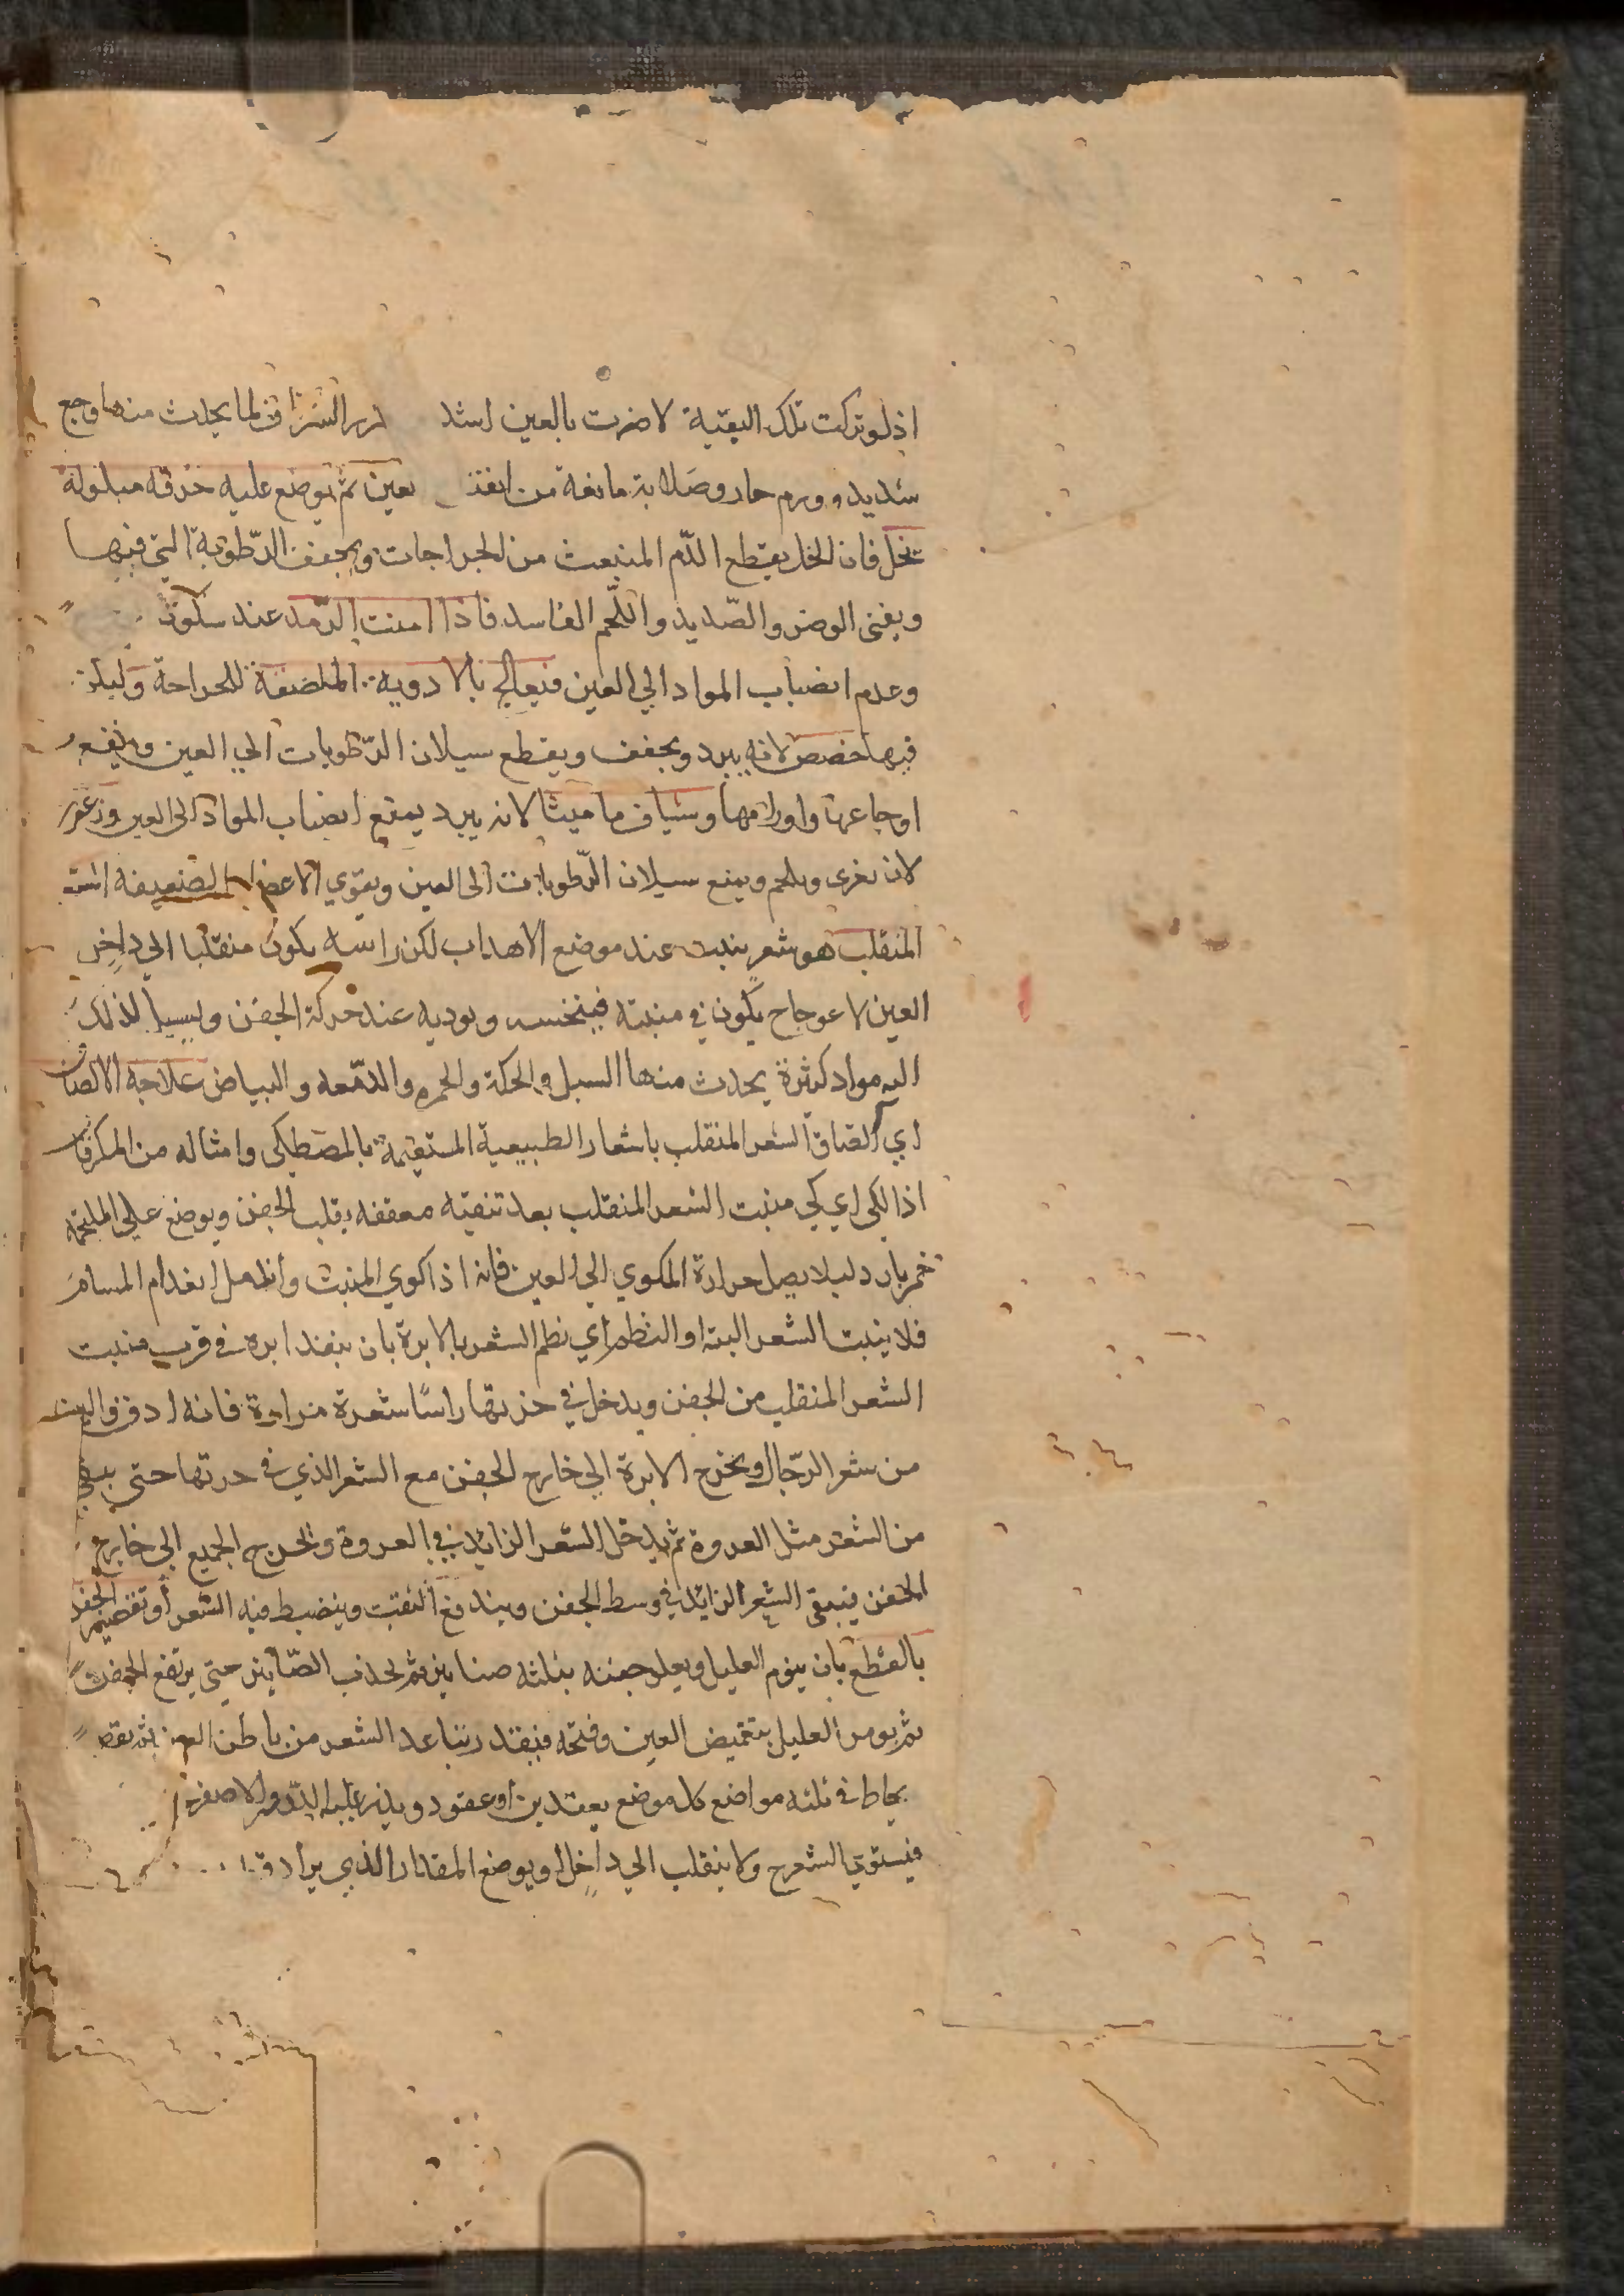 اذ لو تركت تلك البقية لاضرت بالعين اشد الشرناق لما يحدث منها وجع
شديد وورم حار وصلابة مانعة من العين ثم يوضع عليه خرقه مبلولة
بخل فان الخل يقطع الدّم المنبعث من الجراحات ويجفف الرّطوبة التي فيها
ويفنى الوضر والصّديد واللّحم الفاسد فاذا امنت الرّمد عند سكون
وعدم انضباب المواد الي العين فيعالج بالادوية الملصقة للجراحة وليكن
فيها حضض لانه يبرد ويجفف ويقطع سيلان الرّطوبات الي العين وينفع
اوجاعها واورامها وشياف ماميثا لانه يبرد يمنع انضباب المواد الى العين وزعفر
لانه يغرى ويلحم ويمنع سيلان الرّطوبات الى العين ويقوي الاعضا الضعيفه الشعر
المنقلب هو شعر ينبت عند موضع الاهداب لكن راسه يكون منقلبا الي داخل
العين لاعوجاج يكون في منبته فينخسه ويوديه عند حركة الجفن ويسيل لذلك
اليه مواد كثيرة يحدث منها السبل والحكة والحمره والدّمعه والبياض علاجه الالصاق
اي الصاق الشعر المنقلب باشعار الطبيعية المستقيمة بالمصطكى وامثاله من
اذ الكى اي كي منبت الشعر المنقلب بعد تنقيته معقفه يقلب الجفن ويوضع علي الملتحمه
دليلا يصل حرارة المكوي الي العين فانه اذا كوي المنبت انعدام المسام
فلا ينبت الشعر البته او النظم اي نظم الشعر بالابرة بان ينفذ ابره في قرب منبت
الشعر المنقلب من الجفن ويدخل في خرتها راسًا شعرة مراة فانه ادق والين
من شعر الرّجال ويخرج الابرة الي خارج الجفن مع الشعر الذي في خرتها حتى يبقى
من الشعر مثل العروة ثم يدخل الشعر الزائد في العروة ويخرج الجميع الي خارج
الجفن فيبقى الشعر الزائد في وسط الجفن ويندفع الثقب وينضبط فيه الشعر او تقصير الجفن
بالقطع بان ينوم العليل ويعلق جفنه بثلثه صنانير ثم يجذب الصّنانير حتى يرتفع الجفن
ثم يومر العليل بتغميض العين وفتحه فيفقد تباعد الشعر من باطن العين ثم يقطع
يخاط في ثلثه مواضع كل موضع بعقدين او عقود ويذر عليه الذّرور الاصفر
فيستوي الشعر ح ولا ينقلب الي داخل ويوضع المقدار الذي يراد